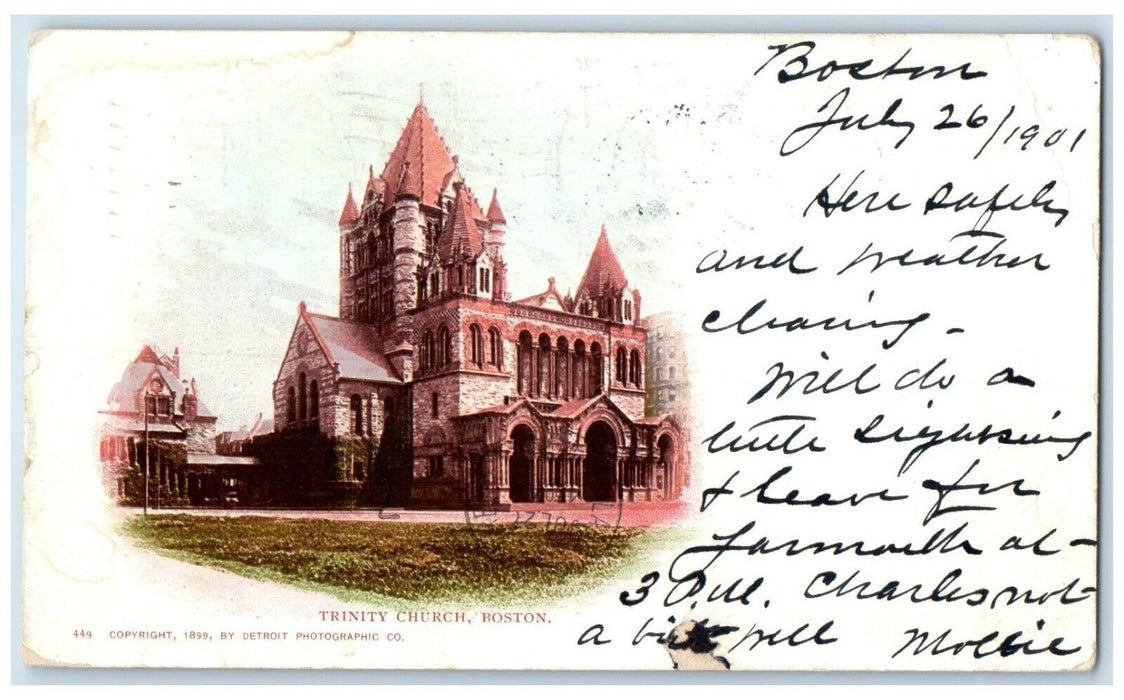 Boston
July 26/1901
Here safely
and weather
clearing -
Will do a
little sightseeing
& leave for
Yarmouth at-
3 P.M. Charles not
a bit well Mollie
TRINITY CHURCH, BOSTON.
449 COPYRIGHT, 1899, BY DETROIT PHOTOGRAPHIC CO.